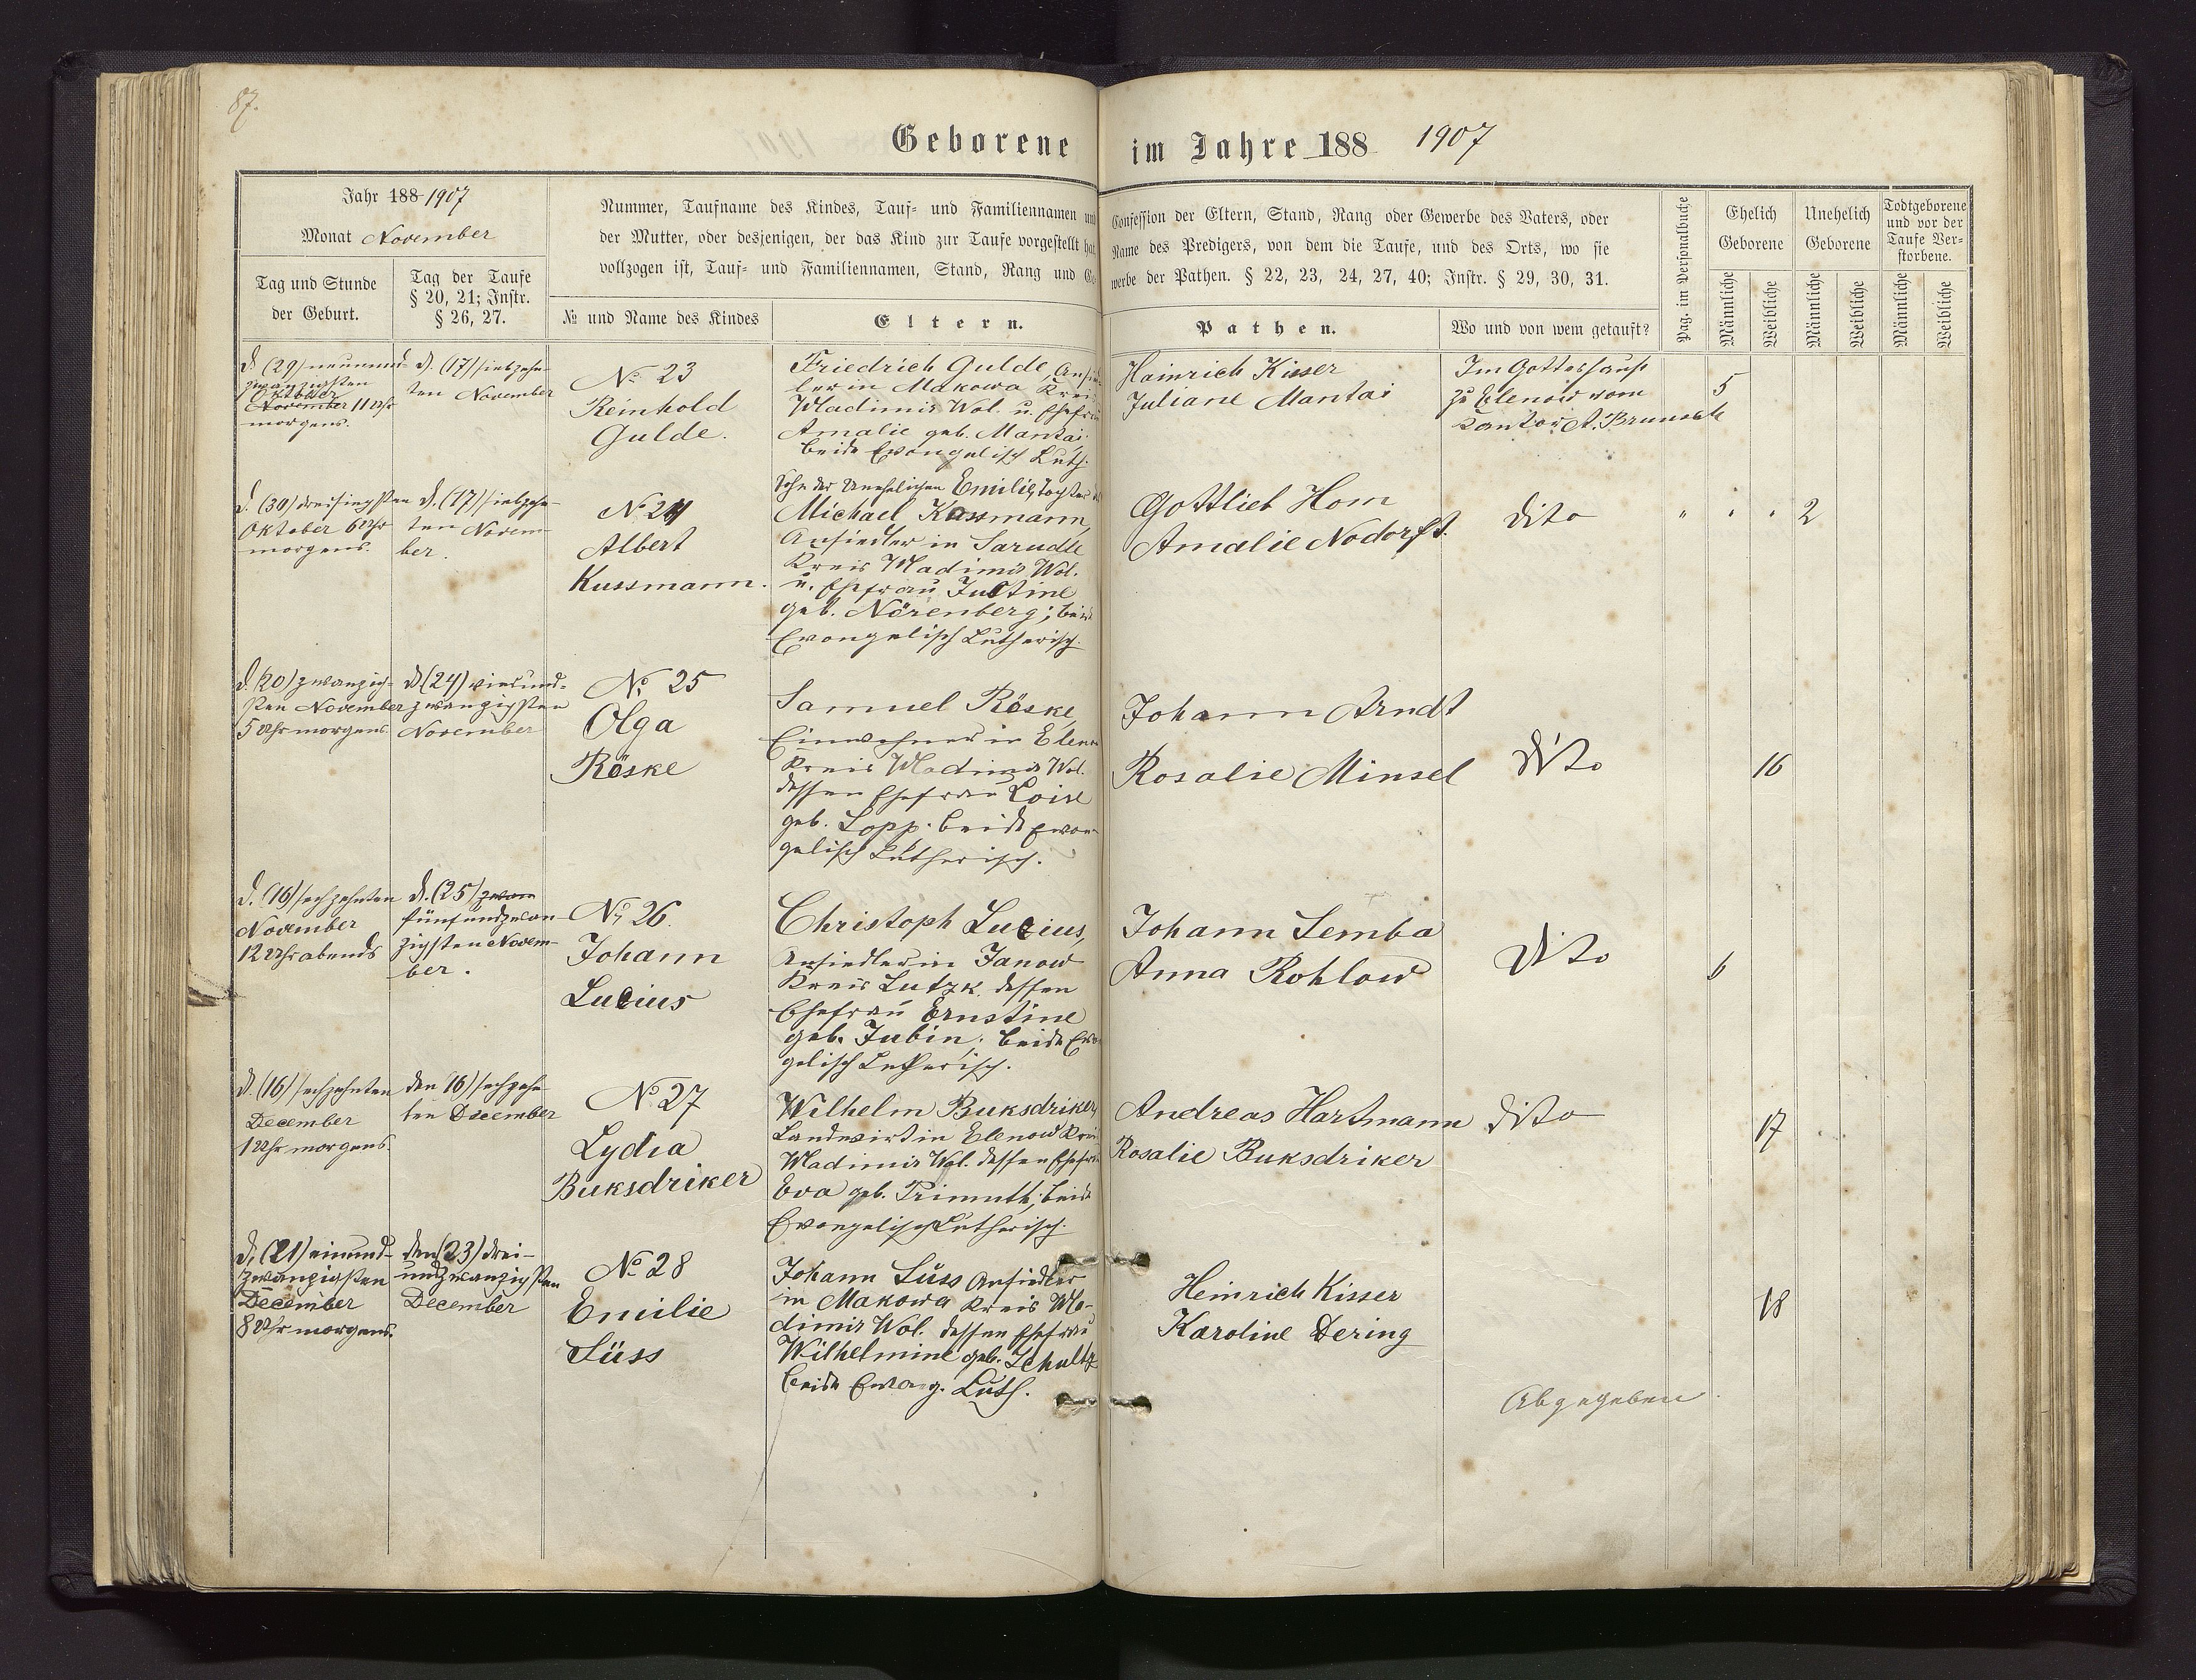 87.
Geborene im Jahre 188 1907
Jahr 188 1907
Monat November
Tag und Stunde
der Geburt.
Tag der Taufe
§ 20, 21; Instr.
§ 26, 27.
Nummer, Taufname des Kindes, Tauf= und Familiennamen und
der Mutter, oder desjenigen, der das Kind zur Taufe vorgestellt hat,
vollzogen ist, Tauf= und Familiennamen, Stand, Rang und Ge-
№ und Name des Kindes
Eltern.
Confession der Eltern, Stand, Rang oder Gewerbe des Vaters, oder
Name des Predigers, von dem die Taufe, und des Orts, wo sie
werbe der Pathen. § 22, 23, 24, 27, 40; Instr. § 29, 30, 31.
Pathen.
Wo und von wem getauft?
Pag. im Personalbuche
Ehelich
Geborene
Unehelich
Geborene
Todtgeborene
und vor der
Taufe Ver=
storbene.
Männliche
Weibliche
Männliche
Weibliche
Männliche
Weibliche
d. (29) neunund-
zwanzigsten
Oktober
November 11 Uhr
morgens.
d. (17) siebzehn-
ten November
№ 23
Reinhold
Gulde.
Friedrich Gulde, Ansied-
ler in Makowa Kreis
Wladimir Wol. u. Ehefrau
Amalie geb. Mantai
beide Evangelisch Luth.
Hainrich Kisser
Juliane Mantai
Im Gotteshause
zu Elenow vom
Kantor A. Brunsch
5
d. (30) dreisigsten
Oktober 6 Uhr
morgens.
d. (17) siebzehn-
ten Novem-
ber.
№ 24
Albert
Kussmann.
Sohn der Unehelichen Emilie, Tochter des
Michael Kussmann,
Ansiedler in Sarudle
Kreis Wladimir Wol.
u. Ehefrau Justine
geb. Nörenberg; beide
Evangelisch Lutherisch.
Gottlieb Hom
Amalie Nodorft.
dito
" " " 2
d. (20) zwanzig-
sten November
5 Uhr morgens
d. (24) vierund-
zwanzigsten
November
№ 25
Olga
Röske
Samuel Röske,
Einwohner in Elenow
Kreis Wladimir Wol.
dessen Ehefrau Loise
geb. Lopp. beide Evan-
gelisch Lutherisch.
Johann Arndt
Rosalie Minsel
dito
16
d. (16) sechzehnten
November
12 Uhr abends
d. (25) zwan
fünfundzwan-
zigsten Novem-
ber.
№ 26
Johann
Lucius
Christoph Lucius,
Ansiedler in Janow
Kreis Lutzk dessen
Ehefrau Ernstine
geb. Jubin; beide Evan-
gelisch Lutherisch.
Johann Semba
Anna Rohlow
Dito
6
d. (16) sechzehnten
December
1 Uhr morgens.
den 16) sechzehn-
ten December
№ 27
Lydia
Buksdriker
Wilhelm Buksdriker,
Landwirt in Elenow Kreis
Wladimir Wol. dessen Ehefrau
Eva geb. Trimuth; beide
Evangelisch Lutherisch.
Andreas Hartmann
Rosalie Buksdriker
dito
17
d. (21) einund-
zwanzigsten
December
8 Uhr morgens.
den (23) drei-
undzwanzigsten
December
№ 28
Emilie
Süss
Johann Süss Ansiedler
in Makowa Kreis Wla-
dimir Wol. dessen Ehefrau
Wilhelmine geb. Schultz
beide Evang. Luth.
Heinrich Kisser
Karoline Dering
18
Abgegeben.